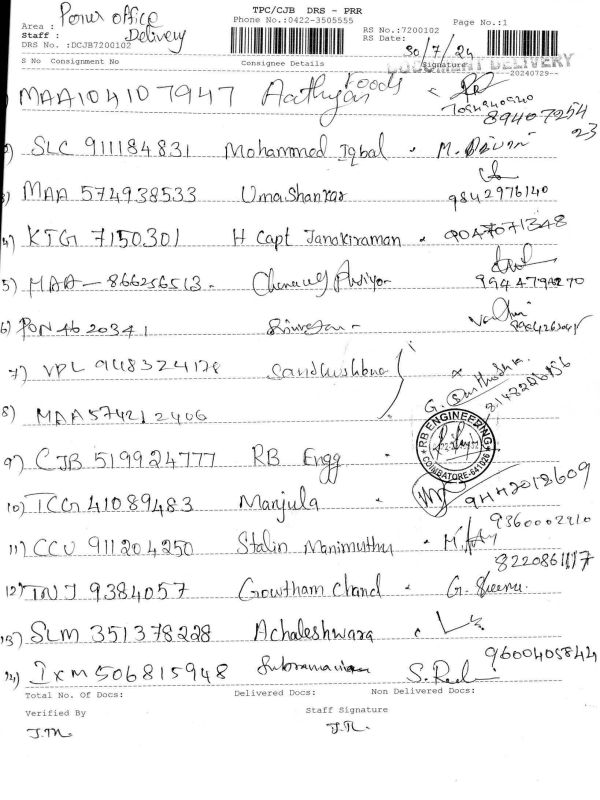 TPC/CJB DRS - PRR
Area : Power office
Phone No.:0422-3505555
Page No.:1
Staff : Delivery
RS No.:7200102
DRS No. :DCJB7200102
RS Date: 30/7/24
DOCUMENT DELIVERY
S No Consignment No Consignee Details Signature
--20240729--
MAA104107947 Aathyas Foods
7094840940
89407254
23
2) SLC 911184831 Mohammed Iqbal
3) MAA 574938533 Umashankar 9842976140
4) KTG 7150301 H Capt Janakiraman 9047071348
5) MAA - 866256513 9944794270
6) PON 4620341
7) VPL 9118324178 Sandhushbua
G. Santhosh
8148226956
8) MAA574212406
RB ENGINEERING
COIMBATORE-641026
9) CJB 519924777 RB Engg
10) TCG 41089483 Manjula 9442012609
9360002910
11) CCU 911204250 Stalin Manimuthu
8220861117
12) TNJ 9384057 Gowtham Chand G. Sreenu.
13) SLM 351378228 Achaleshwara
9600405844
14) IXM 506815948 Subramaniam
Total No. Of Docs: Delivered Docs: Non Delivered Docs:
Verified By Staff Signature